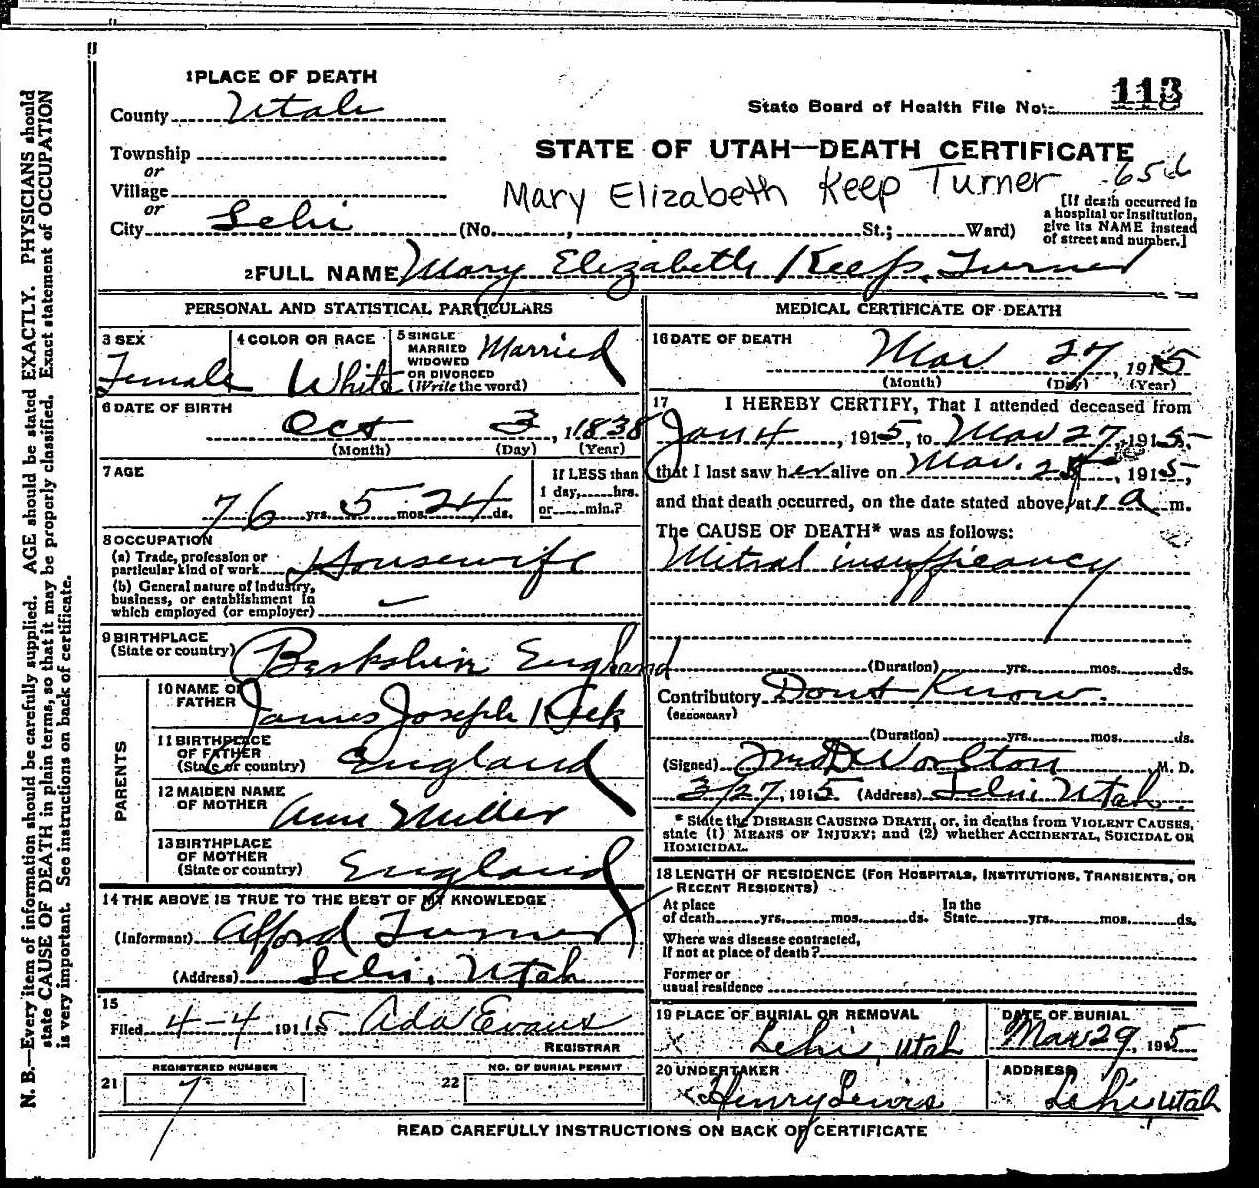 1 PLACE OF DEATH
County Utah
Township
or
Village
or
City Lehi (No. , St.; Ward)
State Board of Health File No. 113
STATE OF UTAH—DEATH CERTIFICATE
Mary Elizabeth Keep Turner
[If death occurred in
a hospital or institution,
give its NAME instead
of street and number.]
2 FULL NAME Mary Elizabeth Keep Turner
PERSONAL AND STATISTICAL PARTICULARS
3 SEX
Female
4 COLOR OR RACE
White
5 SINGLE
MARRIED
WIDOWED
OR DIVORCED
(Write the word)
Married
6 DATE OF BIRTH
Oct 3, 1838
(Month) (Day) (Year)
7 AGE
76 yrs. 5 mos. 24 ds.
If LESS than
1 day, hrs.
or min.?
8 OCCUPATION
(a) Trade, profession or
particular kind of work Housewife
(b) General nature of Industry,
business, or establishment in
which employed (or employer)
9 BIRTHPLACE
(State or country) Berkshire England
PARENTS
10 NAME OF
FATHER James Joseph
11 BIRTHPLACE
OF FATHER
(State or country) England
12 MAIDEN NAME
OF MOTHER Ann Miller
13 BIRTHPLACE
OF MOTHER
(State or country) England
14 THE ABOVE IS TRUE TO THE BEST OF MY KNOWLEDGE
(Informant) Alford Turner
(Address) Lehi, Utah
15
Filed 4-4 1915 Ada Evans
REGISTRAR
REGISTERED NUMBER
21 7
NO. OF BURIAL PERMIT
22
MEDICAL CERTIFICATE OF DEATH
16 DATE OF DEATH
Mar 27, 1915
(Month) (Day) (Year)
17 I HEREBY CERTIFY, That I attended deceased from
Jan 4, 1915, to Mar 27, 1915
that I last saw her alive on Mar. , 1915,
and that death occurred, on the date stated above, at 1 a m.
The CAUSE OF DEATH* was as follows:
Mitral insufficancy
(Duration) yrs. mos. ds.
Contributory Don't Know.
(SECONDARY)
(Duration) yrs. mos. ds.
(Signed) M. D.
3/27, 1915 (Address) Lehi Utah.
* State the DISEASE CAUSING DEATH, or, in deaths from VIOLENT CAUSES,
state (1) MEANS OF INJURY; and (2) whether ACCIDENTAL, SUICIDAL OR
HOMICIDAL.
18 LENGTH OF RESIDENCE (FOR HOSPITALS, INSTITUTIONS, TRANSIENTS, OR
RECENT RESIDENTS)
At place
of death yrs. mos. ds.
In the
State yrs. mos. ds.
Where was disease contracted,
If not at place of death?
Former or
usual residence
19 PLACE OF BURIAL OR REMOVAL
Lehi, Utah
DATE OF BURIAL
Mar 29, 1915
20 UNDERTAKER
Henry Lewis
ADDRESS
Lehi, Utah
READ CAREFULLY INSTRUCTIONS ON BACK OF CERTIFICATE
N. B.—Every item of information should be carefully supplied. AGE should be stated EXACTLY. PHYSICIANS should
state CAUSE OF DEATH in plain terms, so that it may be properly classified. Exact statement of OCCUPATION
is very important. See instructions on back of certificate.